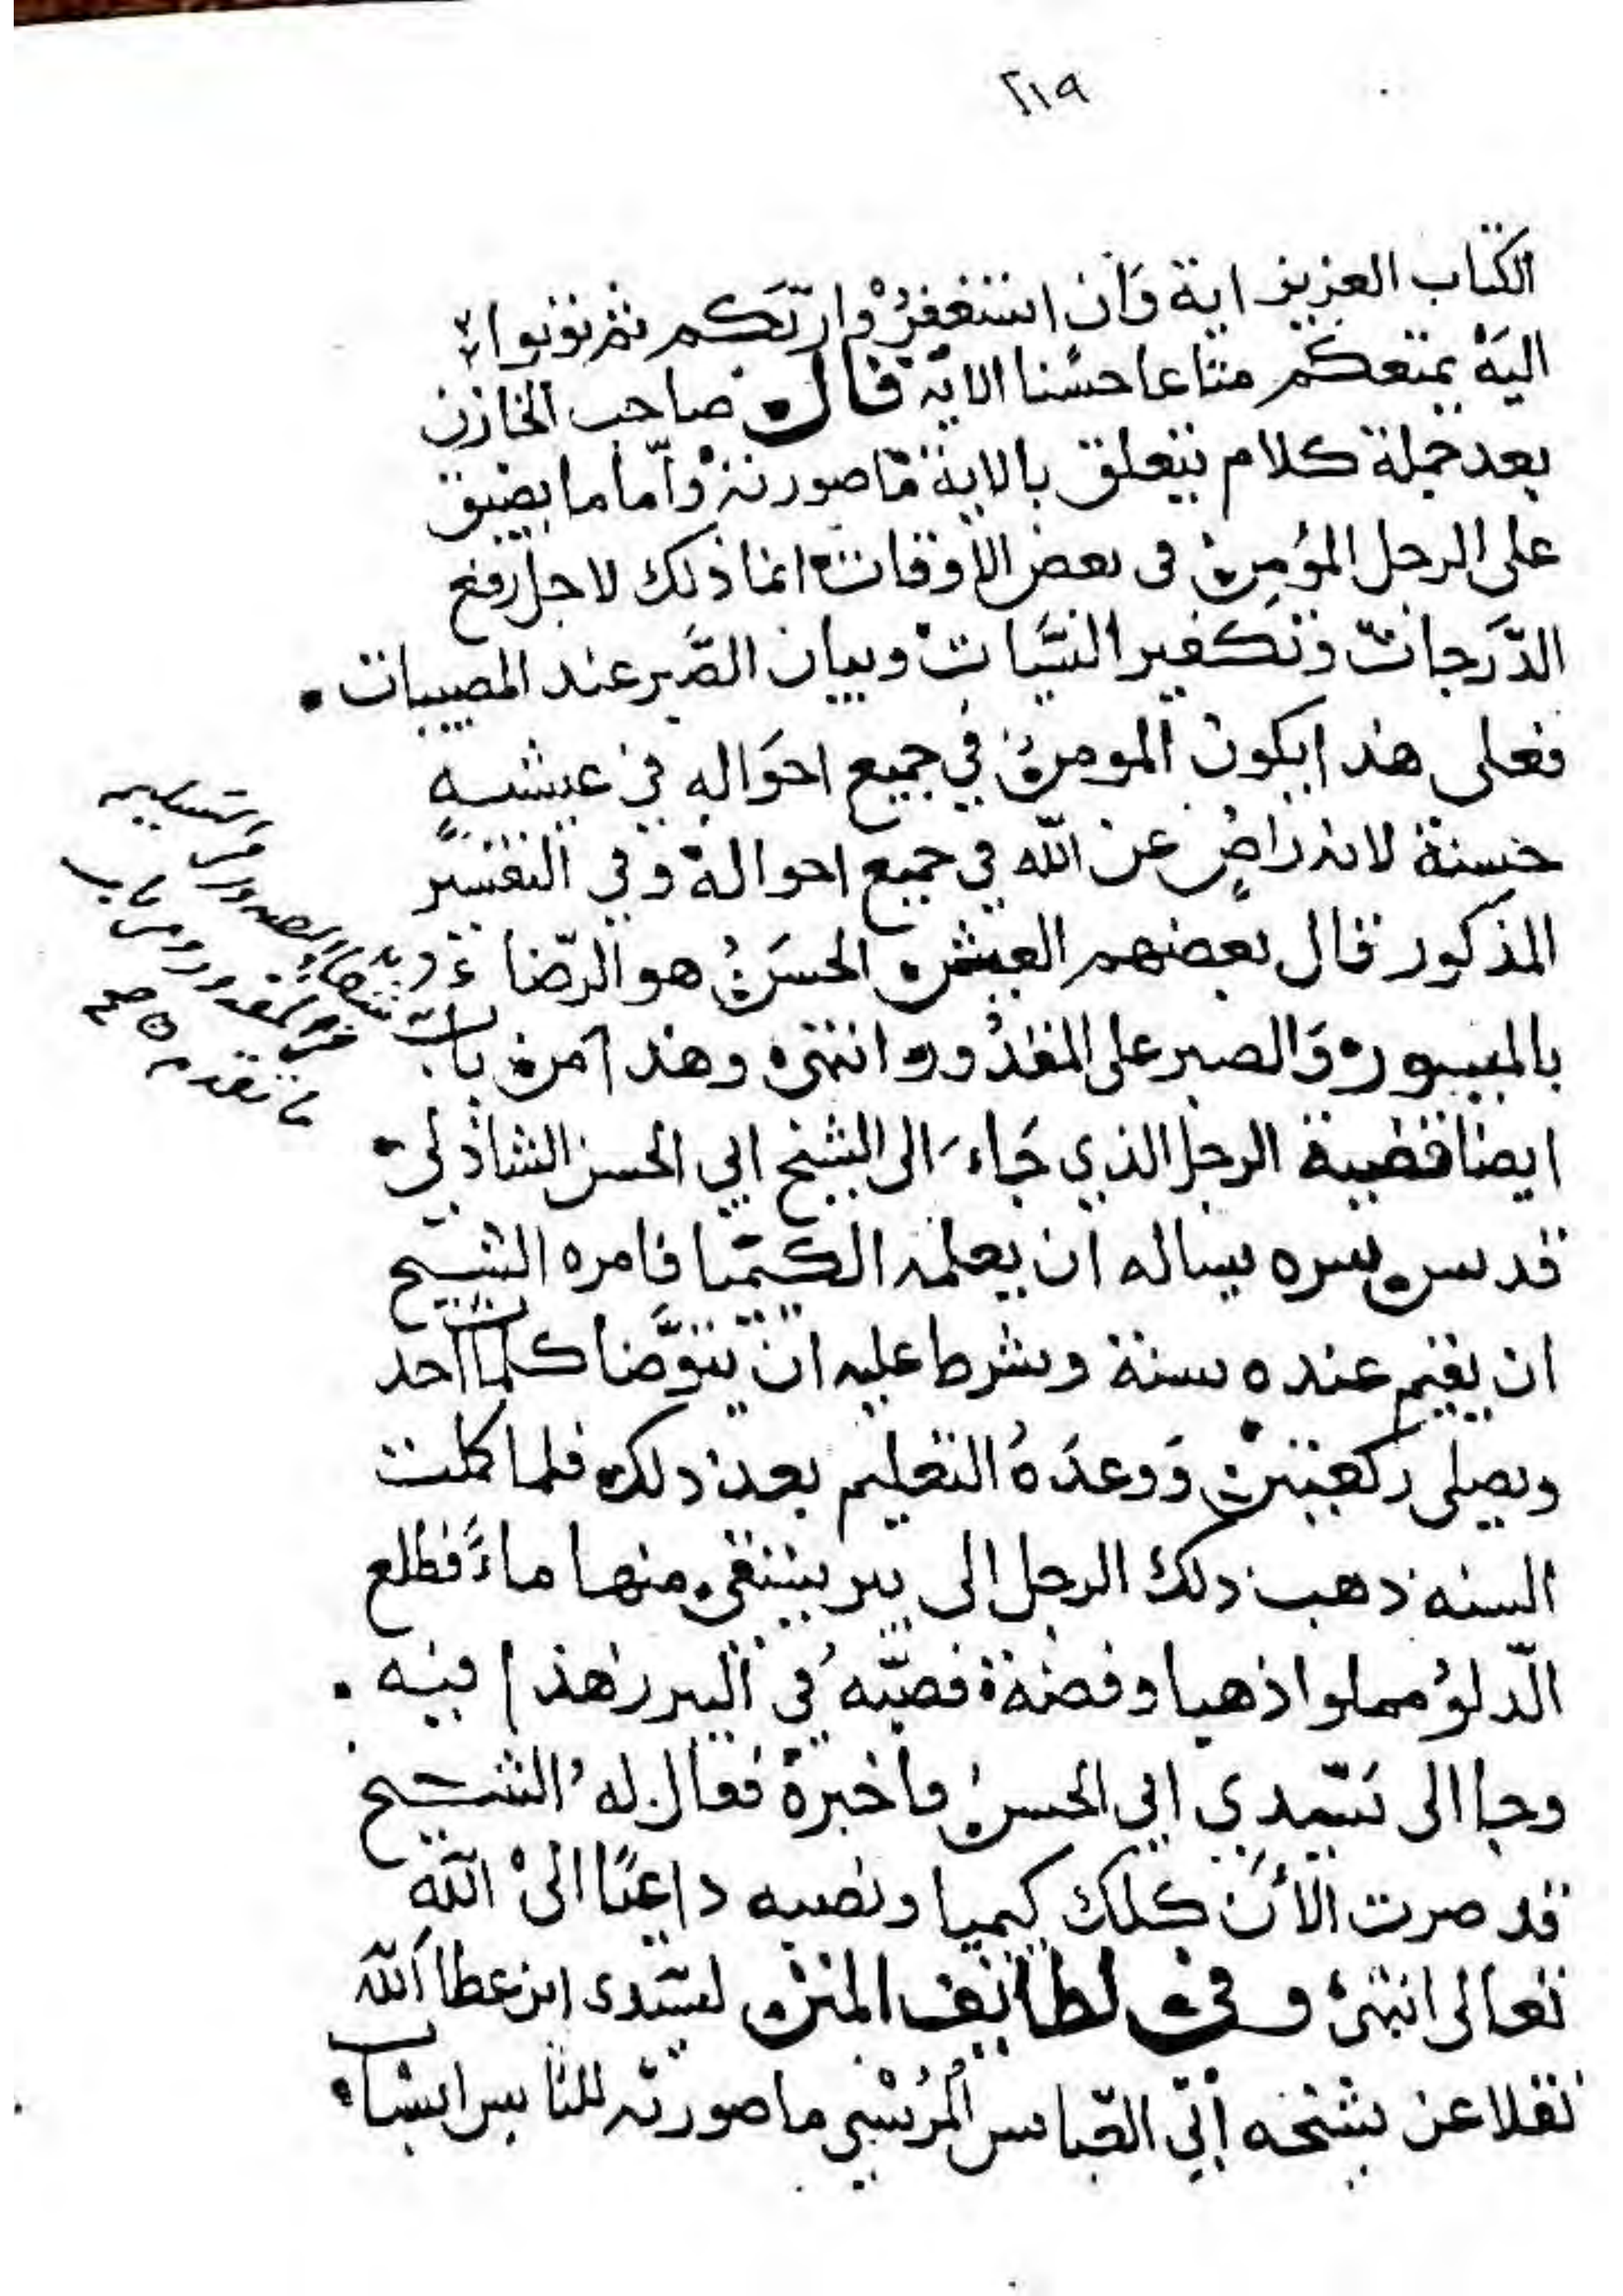 ٢١٩
الكتاب العزيز اية وَان استغفرُوْا ربّكم ثم توبوا
اليهْ يمتعكم متاعا حسْنا الايه قال صاحب الخازن
بعد جملة كلام يتعلق بالاية ما صورته وأمّا ما يضيق
على الرجل المؤمن في بعض الأوقات انما ذلك لاجل رفع
الدَّرجات وتكفير السّيَات وبيان الصَّبر عند المصيبات
فعلى هذا يكون المومن في جميع احوَاله في عيشه
حسنة لانه رَاضٍ عن الله في جميع احواله وفي التفسير
المذكور قال بعضهم العيش الحسَنُ هو الرّضا
بالميسور وَالصبر على المقدُور انتهى وهذا من باب
ايضا قضية الرجل الذي جَاءَ الى الشيخ ابي الحسن الشاذلي
قدس سره يساله ان يعلمه الكيميا فامره الشيخ
ان يقيم عنده سنة وشرط عليه ان يتوَّضا كلما احد
ويصلى ركعتين وَوعدَهُ التعليم بعد ذلك فلما كملت
السنه ذهب ذلك الرجل الى بير يستقى منها ماءً فطلع
الّدلوُ مملوا ذهبا وفضة فصبّهُ في البير زهدا فيه
وجا الى سَيّدي ابي الحسن فاخبرهْ فقال لهُ الشيخ
قد صرت الأن كلك كيميا ونصبه داعيًا الىْ اللّه
تعالى انتهى وفي لطايف المنن لسَيّدى ابن عطا اللّه
نقلا عن شيخه أبي العّباس المُرْسْي ما صورته للناس اسباب
والتسليم
ومن باب
ما تقدم صح